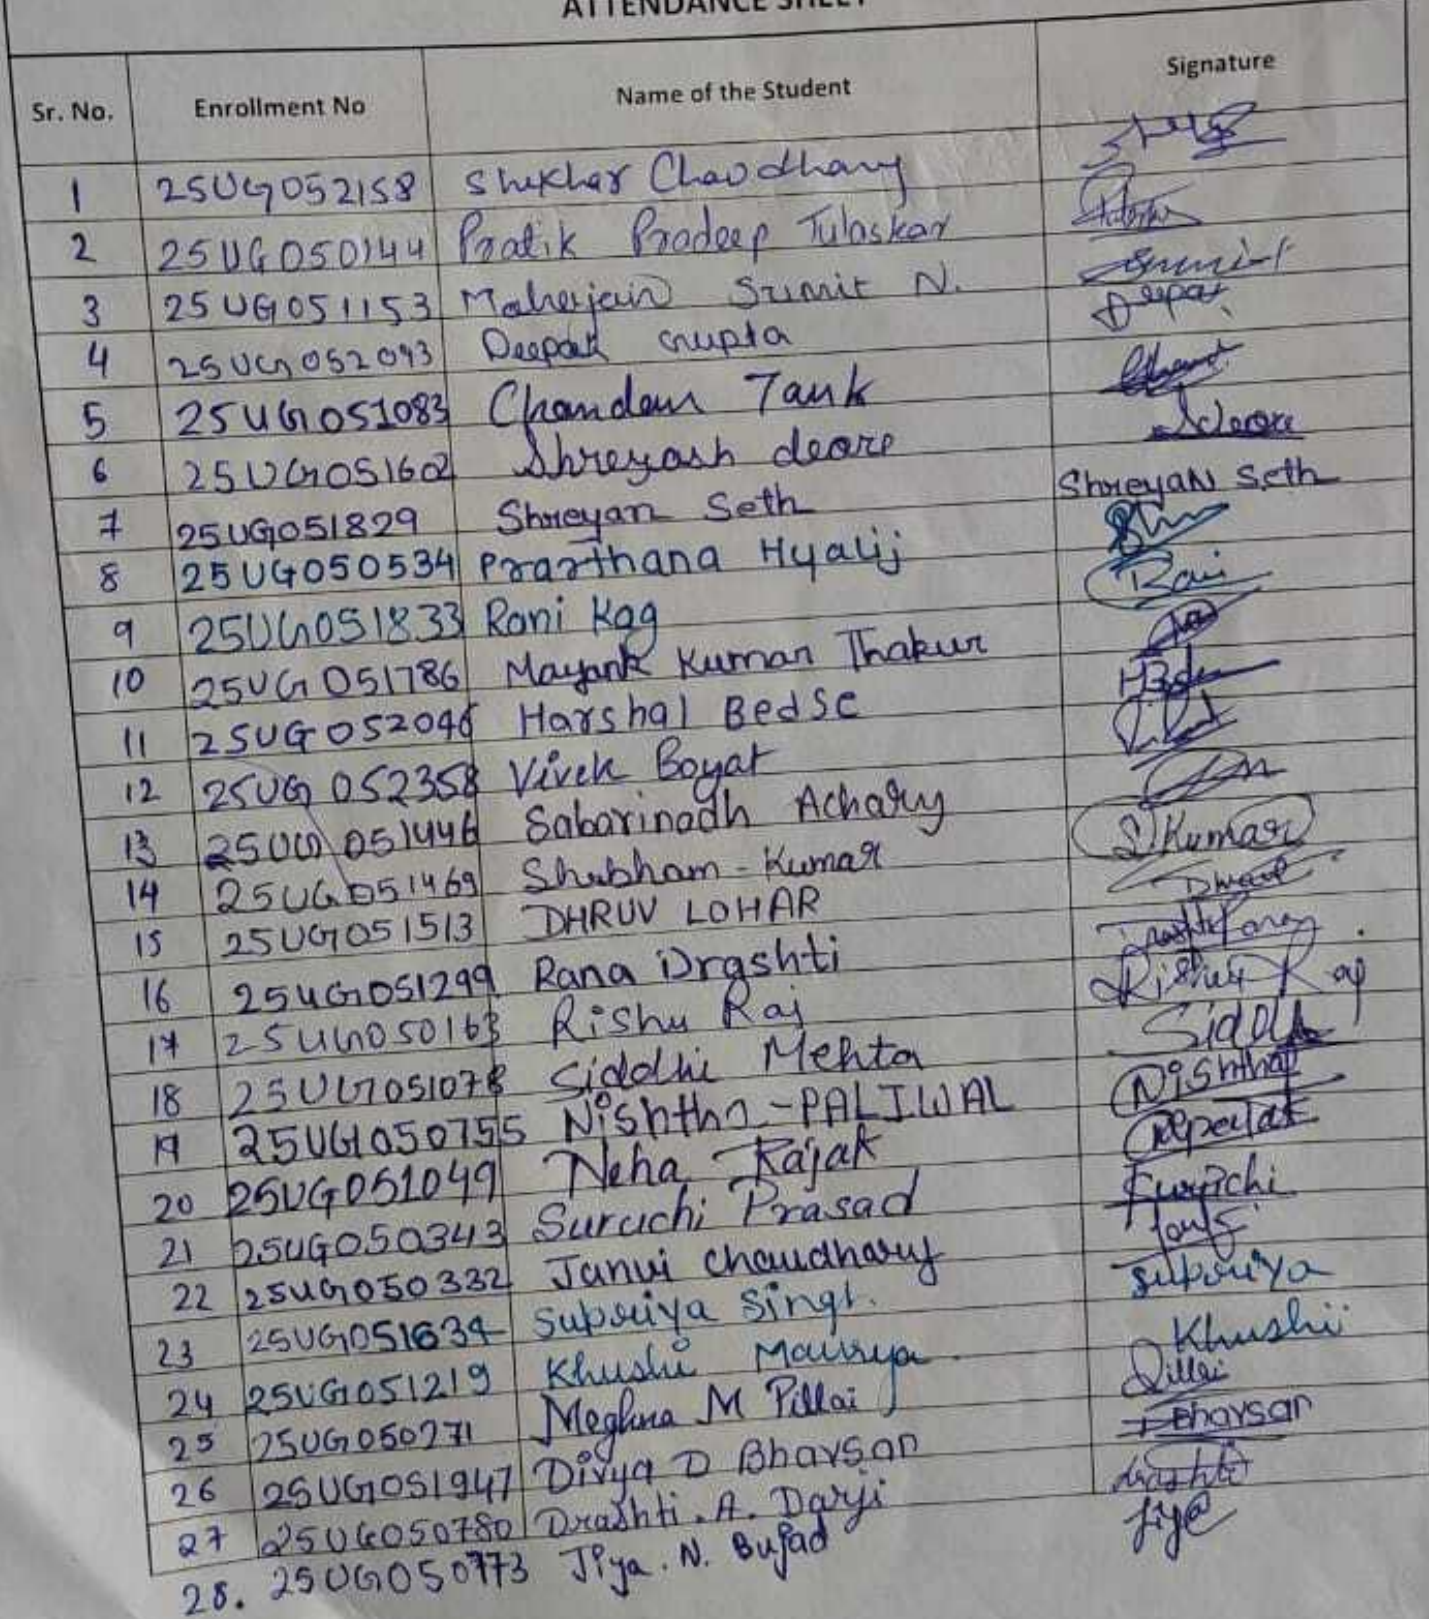 ATTENDANCE SHEET
Sr. No. Enrollment No Name of the Student Signature
1 25UG052158 Shekhar Chaudhary
2 25UG050144 Pratik Pradeep Tulaskar
3 25UG051153 Maherjain Sumit N. Sumit
4 25UG052093 Deepak Gupta Deepak
5 25UG051083 Chandan Tank
6 25UG051602 Shreyash deore Sdeore
7 25UG051829 Shreyan Seth Shreyan Seth
8 25UG050534 Prarthana Hyalij
9 25UG051833 Rani Kag Rani
10 25UG051786 Mayank Kumar Thakur
11 25UG052046 Harshal Bedse
12 25UG052358 Vivek Boyat
13 25UG051446 Sabarinadh Achary
14 25UG051469 Shubham-Kumar S Kumar
15 25UG051513 DHRUV LOHAR Dhruv
16 25UG051299 Rana Drashti
17 25UG050163 Rishu Raj Rishu Raj
18 25UG051078 Siddhi Mehta Siddhi
19 25UG050755 Nishtha-PALIWAL Nishtha
20 25UG051049 Neha Rajak
21 25UG050343 Suruchi Prasad Suruchi
22 25UG050332 Janvi Chaudhary
23 25UG051634 Supriya Singh. Supriya
24 25UG051219 Khushi Maurya Khushi
25 25UG050271 Meghna M Pillai Pillai
26 25UG051947 Divya D Bhavsar Bhavsar
27 25UG050780 Drashti. A. Darji drashti
28. 25UG050773 Jiya. N. Bujad Jiya